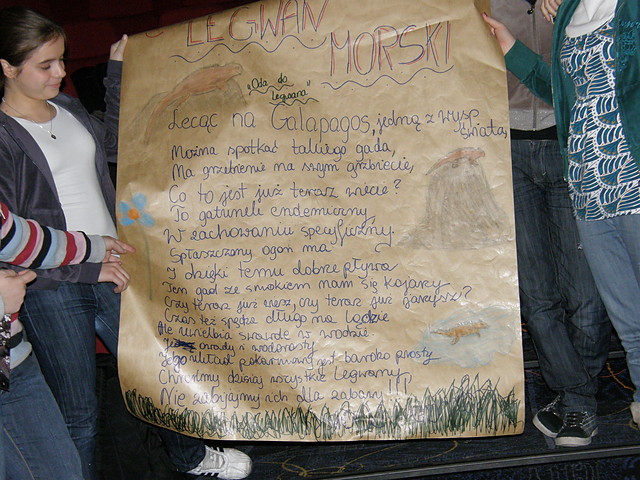 LEGWAN
MORSKI
"Oda do
Legwana"
Lecąc na Galapagos, jedną z wysp
świata,
Można spotkać takiego gada,
Ma grzebienie na swym grzbiecie,
Co to jest już teraz wiecie?
To gatunek endemiczny
W zachowaniu specyficzny.
Spłaszczony ogon ma
I dzięki temu dobrze pływa
Ten gad ze smokiem nam się kojarzy
Czy teraz już wiesz, czy teraz już
Czas też spędza długo na lądzie
Ale uwielbia w wodzie
i wodorosty
Jego układ pokarmowy jest bardzo prosty
Chrońmy dzisiaj wszystkie legwany
Nie zabijajmy ich dla zabawy!!!